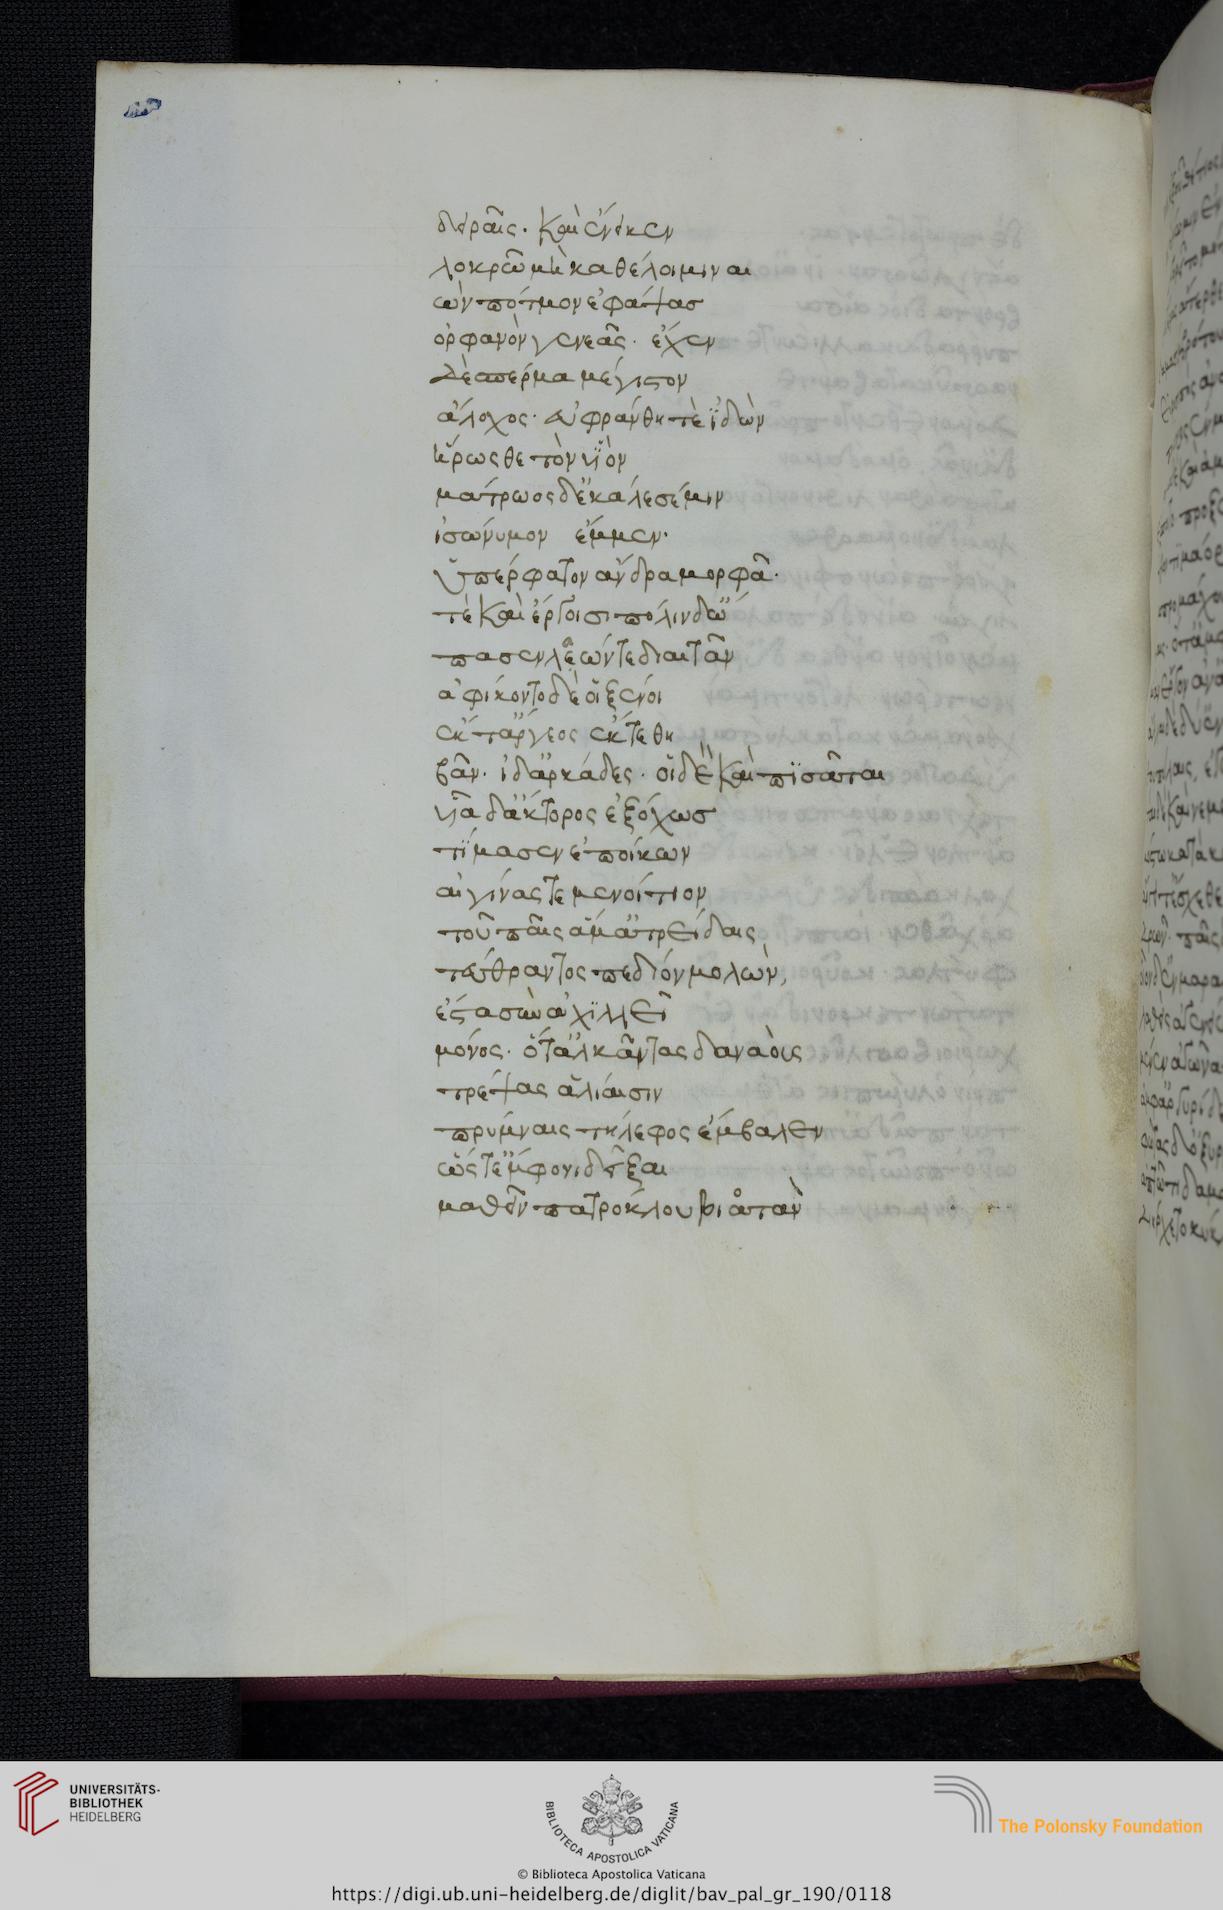 δειραῖς. Καὶ ἔνεικεν
λοκρῶ μὴ καθέλοιμιν αι
ὼν πότμον ἐφάψασ
ὀρφανὸν γενεᾶς. ἔχεν
δὲ σπέρμα μέγιστον
ἄλοχος. εὐφράνθη τὲ ἰδὼν
ἥρως θετὸν υἱὸν
μάτρωος δ' ἐκάλεσέ μιν
ἰσώνυμον ἔμμεν.
ὑπέρφατον ἄνδρα μορφᾶ.
τὲ Καὶ ἔργοισι πόλιν δ' ὤ
πασεν λαὸν τε διαιτᾶν
ἀφίκοντο δέ οἱ ξένοι
ἐκ τ' ἄργεος ἔκ τε θη
βᾶν. ἰδ' ἀρκάδες. οἱ δὲ Καὶ πισᾶται
υἱα δ' ἄκτορος ἐξόχωσ
τίμασεν ἐποίκων
αἰγίνας τε μενοίτιον
τοῦ παῖς ἅμ' ἀτρείδαις
τεύθραντος πεδίον μολὼν,
ἔστα σὺν ἀχιλλεῖ
μόνος. ὅτ' ἀλκᾶντας δαναοὺς
τρέψας ἁλίαισιν
πρύμναις τήλεφος ἔμβαλεν
ὥς τ' ἔμφρονι δεῖξαι
μαθεῖν πατρόκλου βιατὰν
UNIVERSITÄTS-
BIBLIOTHEK
HEIDELBERG
BIBLIOTECA APOSTOLICA VATICANA
© Biblioteca Apostolica Vaticana
The Polonsky Foundation
https://digi.ub.uni-heidelberg.de/diglit/bav_pal_gr_190/0118